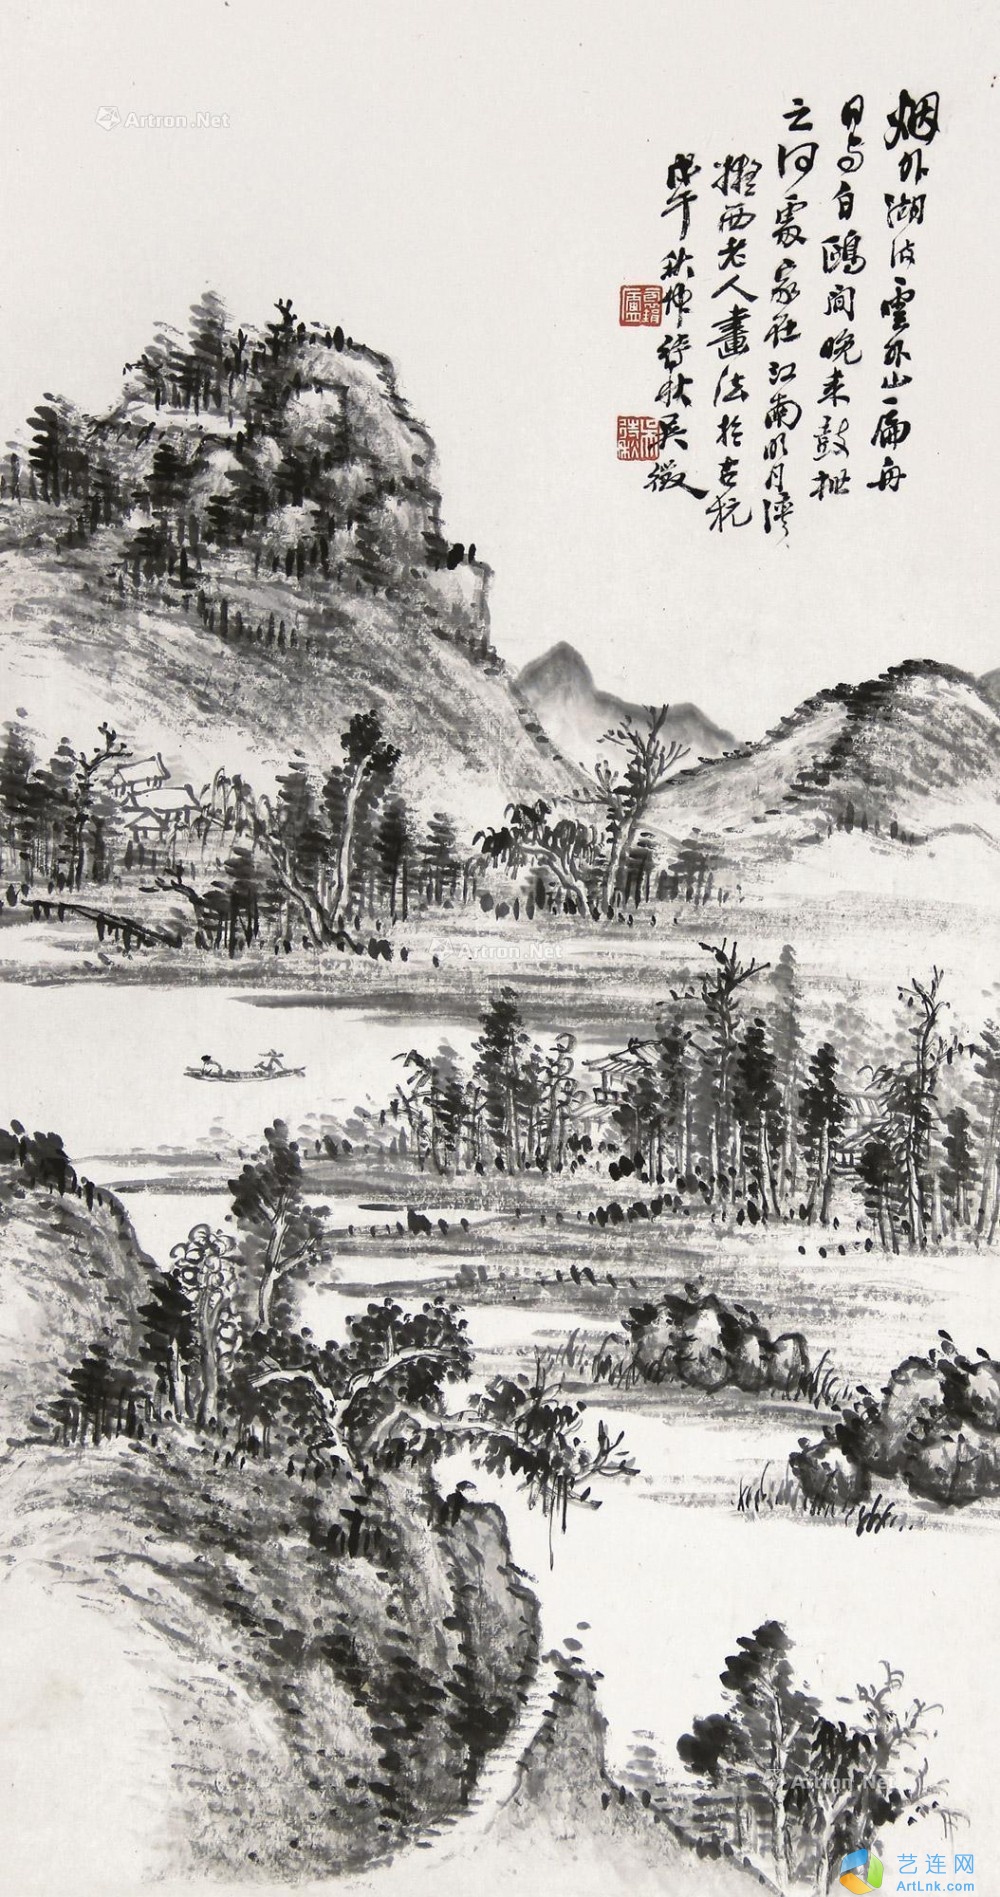 烟外湖波雲外山扁舟
日与白鷗閒晚来鼓枻
之何處家在江南明月灣
擬西老人畫法於古杭
戊午秋仲待秋吳徵
Artron.Net
Artron.Net
Artron.Net
艺连网
ArtLnk.com